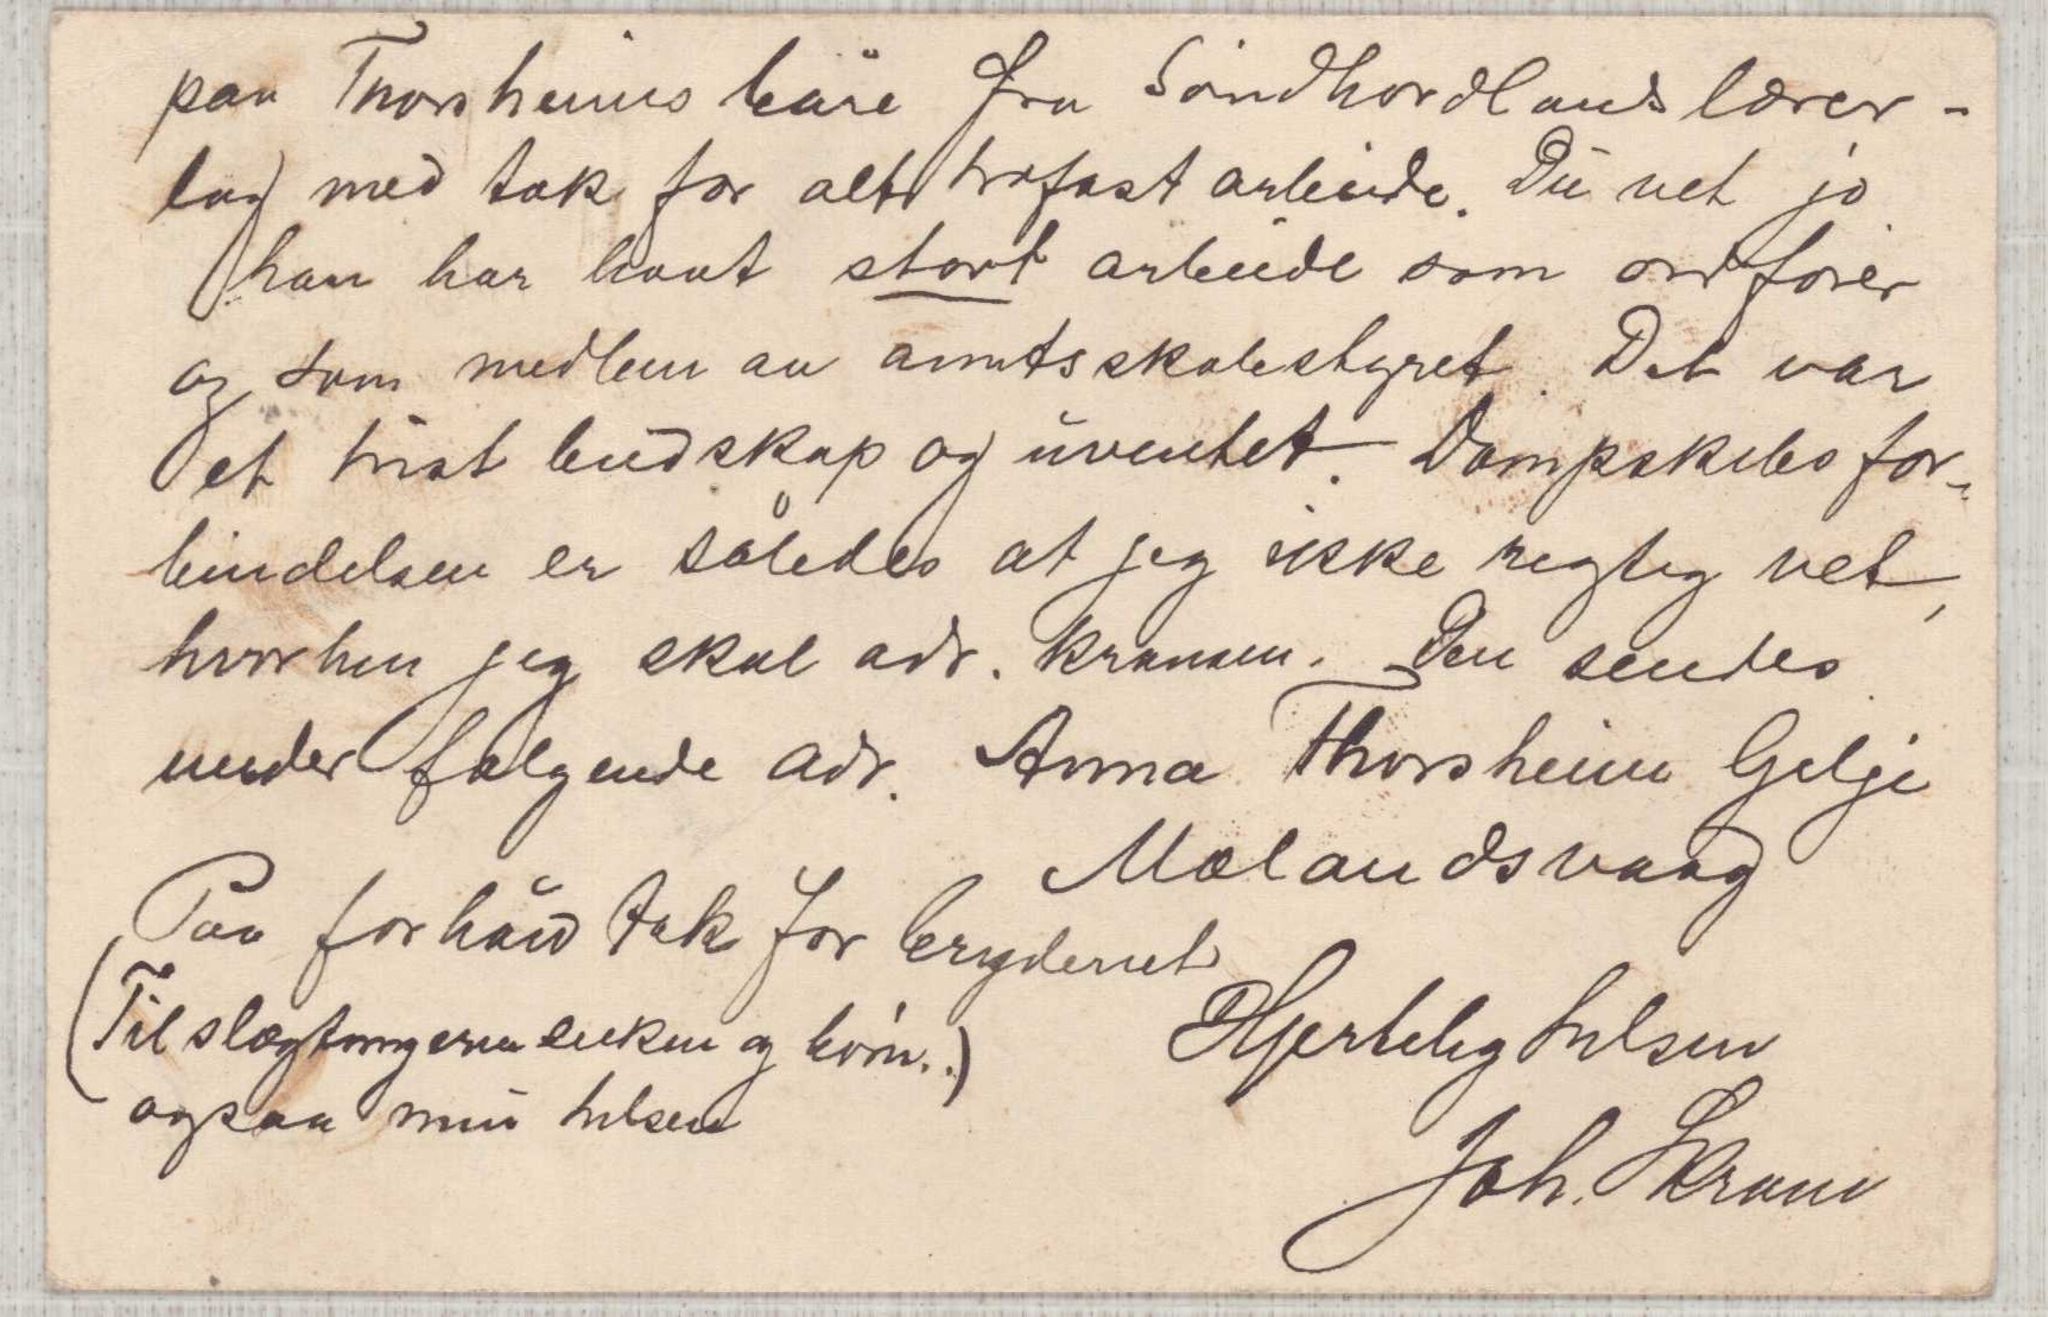 paa Thorsheims båre fra Söndhordlands lærer-
lag med tak for alt trofast arbeide. Du vet jo
han har havt stort arbeide som ordfører
og som medlem av amtsskolestyret. Det var
et trist budskap og uventet. Dampskibsfor-
bindelsen er således at jeg ikke regtig vet,
hvorhen jeg skal adr. kransen. Den sendes
under følgende adr. Anna Thorsheim Gilje
Mælandsvaag
Paa forhånd tak for bryderiet
(Til slægtningerne enken og børn..)
ogsaa min hilsen
Hjertelig hilsen
Joh.